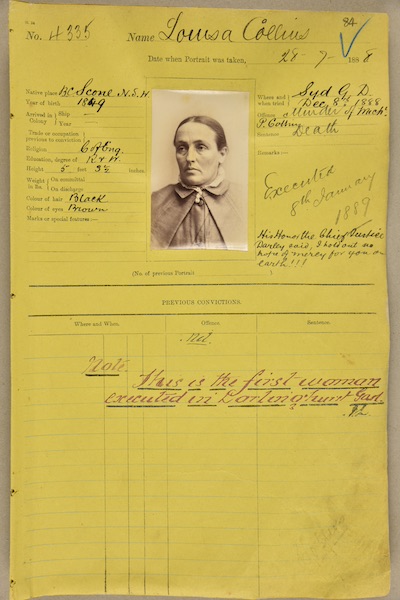 84
No. 4335 Name Louisa Collins
Date when Portrait was taken, 28-7-1888
Native place BC Scone N.S.W
Year of birth 1849
Arrived in Colony } Ship
Year
Trade or occupation previous to conviction }
Religion C of Eng.
Education, degree of R & W.
Height 5 feet 3½ inches
Weight in lbs. } On committal
On discharge
Colour of hair Black
Colour of eyes Brown
Marks or special features:—
Where and when tried } Syd G. D.
Dec. 8th 1888
Offence Murder of Mich.
P. Collins
Sentence Death
Remarks:—
Executed
8th January
1889
His Honor the Chief Justice
Darley said, I hold out no
hope of mercy for you on
earth!!!
(No. of previous Portrait )
PREVIOUS CONVICTIONS.
Where and When. Offence. Sentence.
Nil.
Note.
This is the first woman
executed in Darlinghurst Gaol.